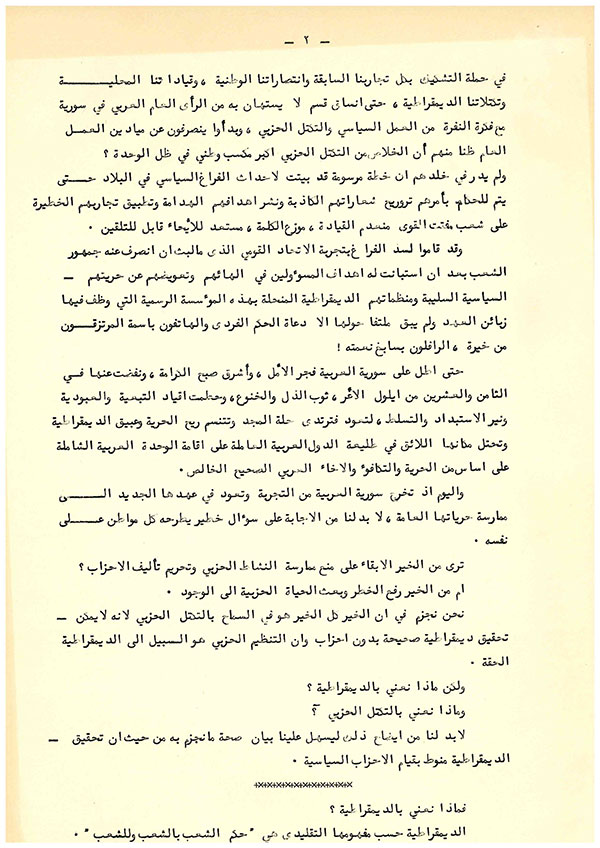 — ٢ —
في حملة التشكيك بكل تجاربنا السابقة وانتصاراتنا الوطنية ، وقياداتنا المحليـــــة
وتكتلاتنا الديمقراطية ، حتى انساق قسم لا يستهان به من الرأى العام العربي في سورية
مع فكرة النفرة من العمل السياسي والتكتل الحزبي ، وبدأوا ينصرفون عن ميادين العمـــل
العام ظنا منهم أن الخلاص من التكتل الحزبي اكبر مكسب وطني في ظل الوحدة ؟
ولم يدر في خلدهم ان خطة مرسومة قد بيتت لاحداث الفراغ السياسي في البلاد حـــتى
يتم للحكام بأمرهم ترويج شعاراتهم الكاذبة ونشر اهدافهم الهدامة وتطبيق تجاربهم الخطيرة
على شعب مفتت القوى منعدم القيادة ، موزع الكلمة ، مستعد للأيحاء قابل للتلقين ٠
وقد قاموا لسد الفراغ بتجربة الاتحاد القومي الذى مالبث ان انصرف عنه جمهور
الشعب بعد ان استبانت له اهداف المسؤولين في الهائهم وتعويضهم عن حريتهم —
السياسية السليبة ومنظماتهم الديمقراطية المنحلة بهذه المؤسسة الرسمية التي وظف فيها
زبائن العهد ولم يبق ملتفا حولها الا دعاة الحكم الفردى والهاتفون باسمه المرتزقـــون
من خيره ، الرافلون بسابغ نعمته !
حتى اطل على سورية العربية فجر الأمل ، وأشرق صبح الكرامة ، ونفضت عنها فـــي
الثامن والعشرين من ايلول الأغر ، ثوب الذل والخنوع ، وحطمت اقياد التبعية والعبودية
ونير الاستبداد والتسلط ، لتعود فترتدى حلة المجد وتتنسم ريح الحرية وعبيق الديمقراطية
وتحتل مكانها اللائق في طليعة الدول العربية العاملة على اقامة الوحدة العربية الشاملة
على اساس من الحرية والتكافوء والاخاء العربي الصحيح الخالص ٠
واليوم اذ تخرج سورية العربية من التجربة وتعود في عهدها الجديد الـــــى
ممارسة حرياتها العامة ، لا بد لنا من الاجابة على سوءال خطير يطرحه كل مواطن عـــلى
نفسه ٠
ترى من الخير الابقاء على منع ممارسة النشاط الحزبي وتحريم تأليف الاحزاب ؟
ام من الخير رفع الخطر وبعث الحياة الحزبية الى الوجود ٠
نحن نجزم في ان الخير كل الخير هو في السماح بالتكتل الحزبي لانه لا يمكن —
تحقيق ديمقراطية صحيحة بدون احزاب وان التنظيم الحزبي هو السبيل الى الديمقراطية
الحقة ٠
ولكن ماذا نعني بالديمقراطية ؟
وماذا نعني بالتكتل الحزبي ؟
لابد لنا من ايضاح ذلك ليسهل علينا بيان صحة مانجزم به من حيث ان تحقيق —
الديمقراطية منوط بقيام الاحزاب السياسية ٠
+x+x+x+x+x+x+x+x+x+
فماذا نعني بالديمقراطية ؟
الديمقراطية حسب مفهومها التقليدى هي " حكم الشعب بالشعب وللشعب " ٠